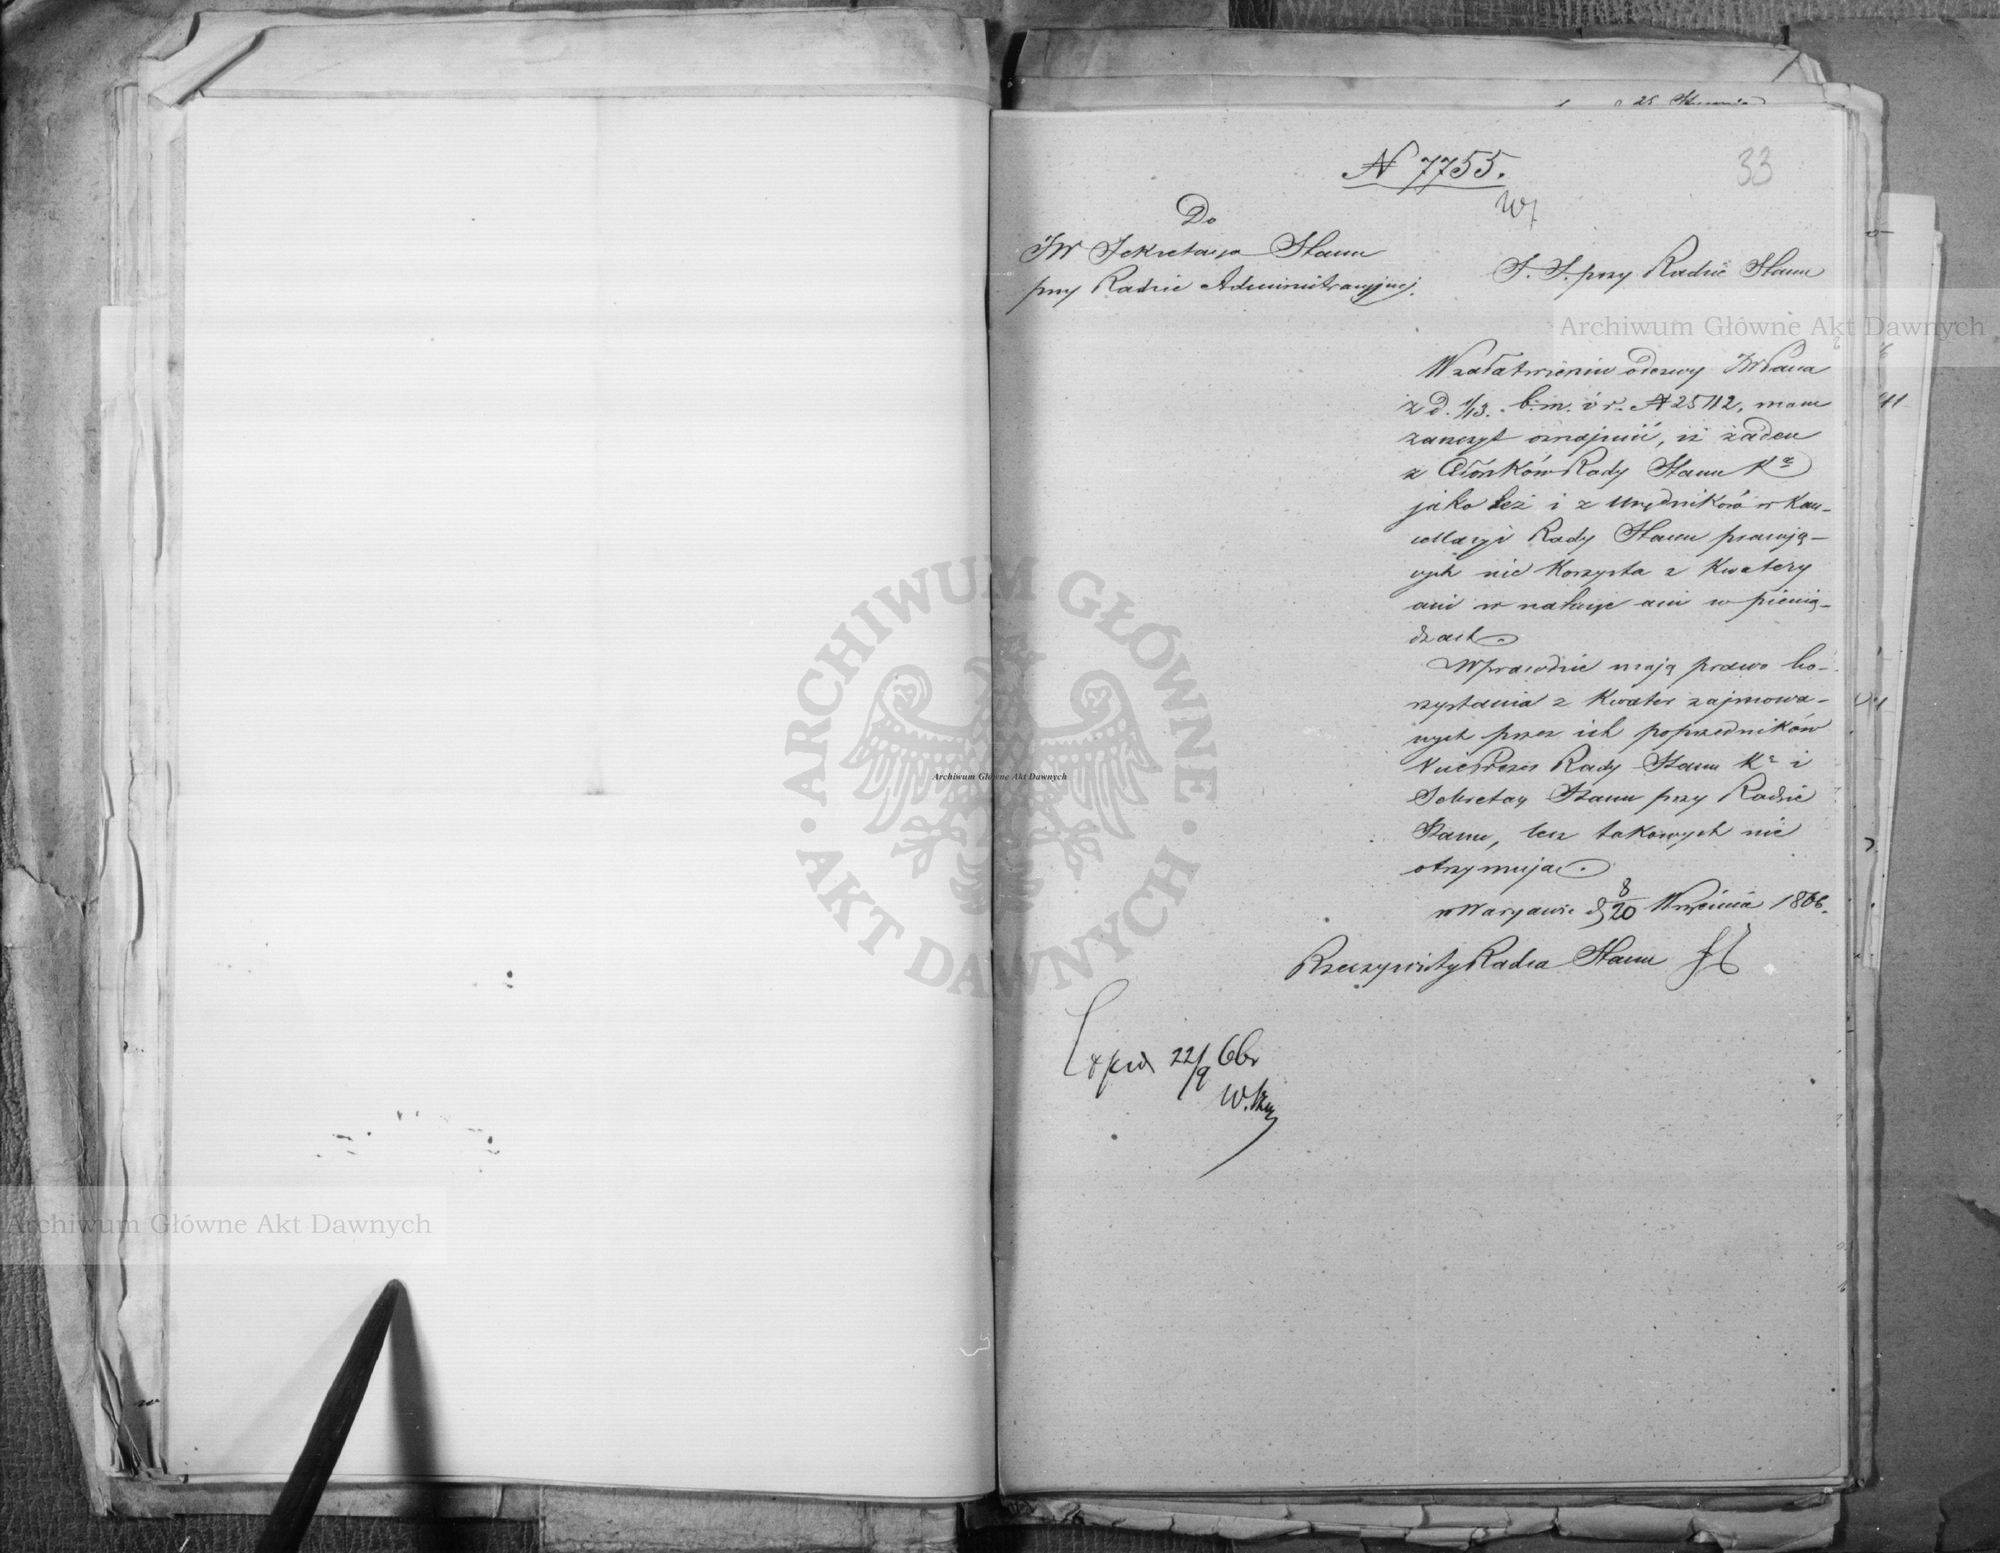 25
33
N 7755.
Do
JW Sekretarza Stanu
przy Radzie Administracyjnej.
S. S. przy Radzie Stanu
W załatwieniu odezwy JWPana
z d. 1/13. b. m. i r. N 25112, mam
zaszczyt oznajmić, iż żaden
z Członków Rady Stanu Kr
jako też i z Urzędników w Kan-
cellaryi Rady Stanu pracują-
cych nie korzysta z Kwatery
ani w naturze ani w pienią-
dzach.
Wprawdzie mają prawo ko-
rzystania z Kwater zajmowa-
nych przez ich poprzedników
VicePrezes Rady Stanu Kr i
Sekretarz Stanu przy Radzie
Stanu, lecz takowych nie
otrzymują.
w Warszawie d 8/20 Września 1866.
Rzeczywisty Radca Stanu
Exped 22/9 66r
Archiwum Główne Akt Dawnych
ARCHIWUM GŁÓWNE
AKT DAWNYCH
Archiwum Główne Akt Dawnych
Archiwum Główne Akt Dawnych